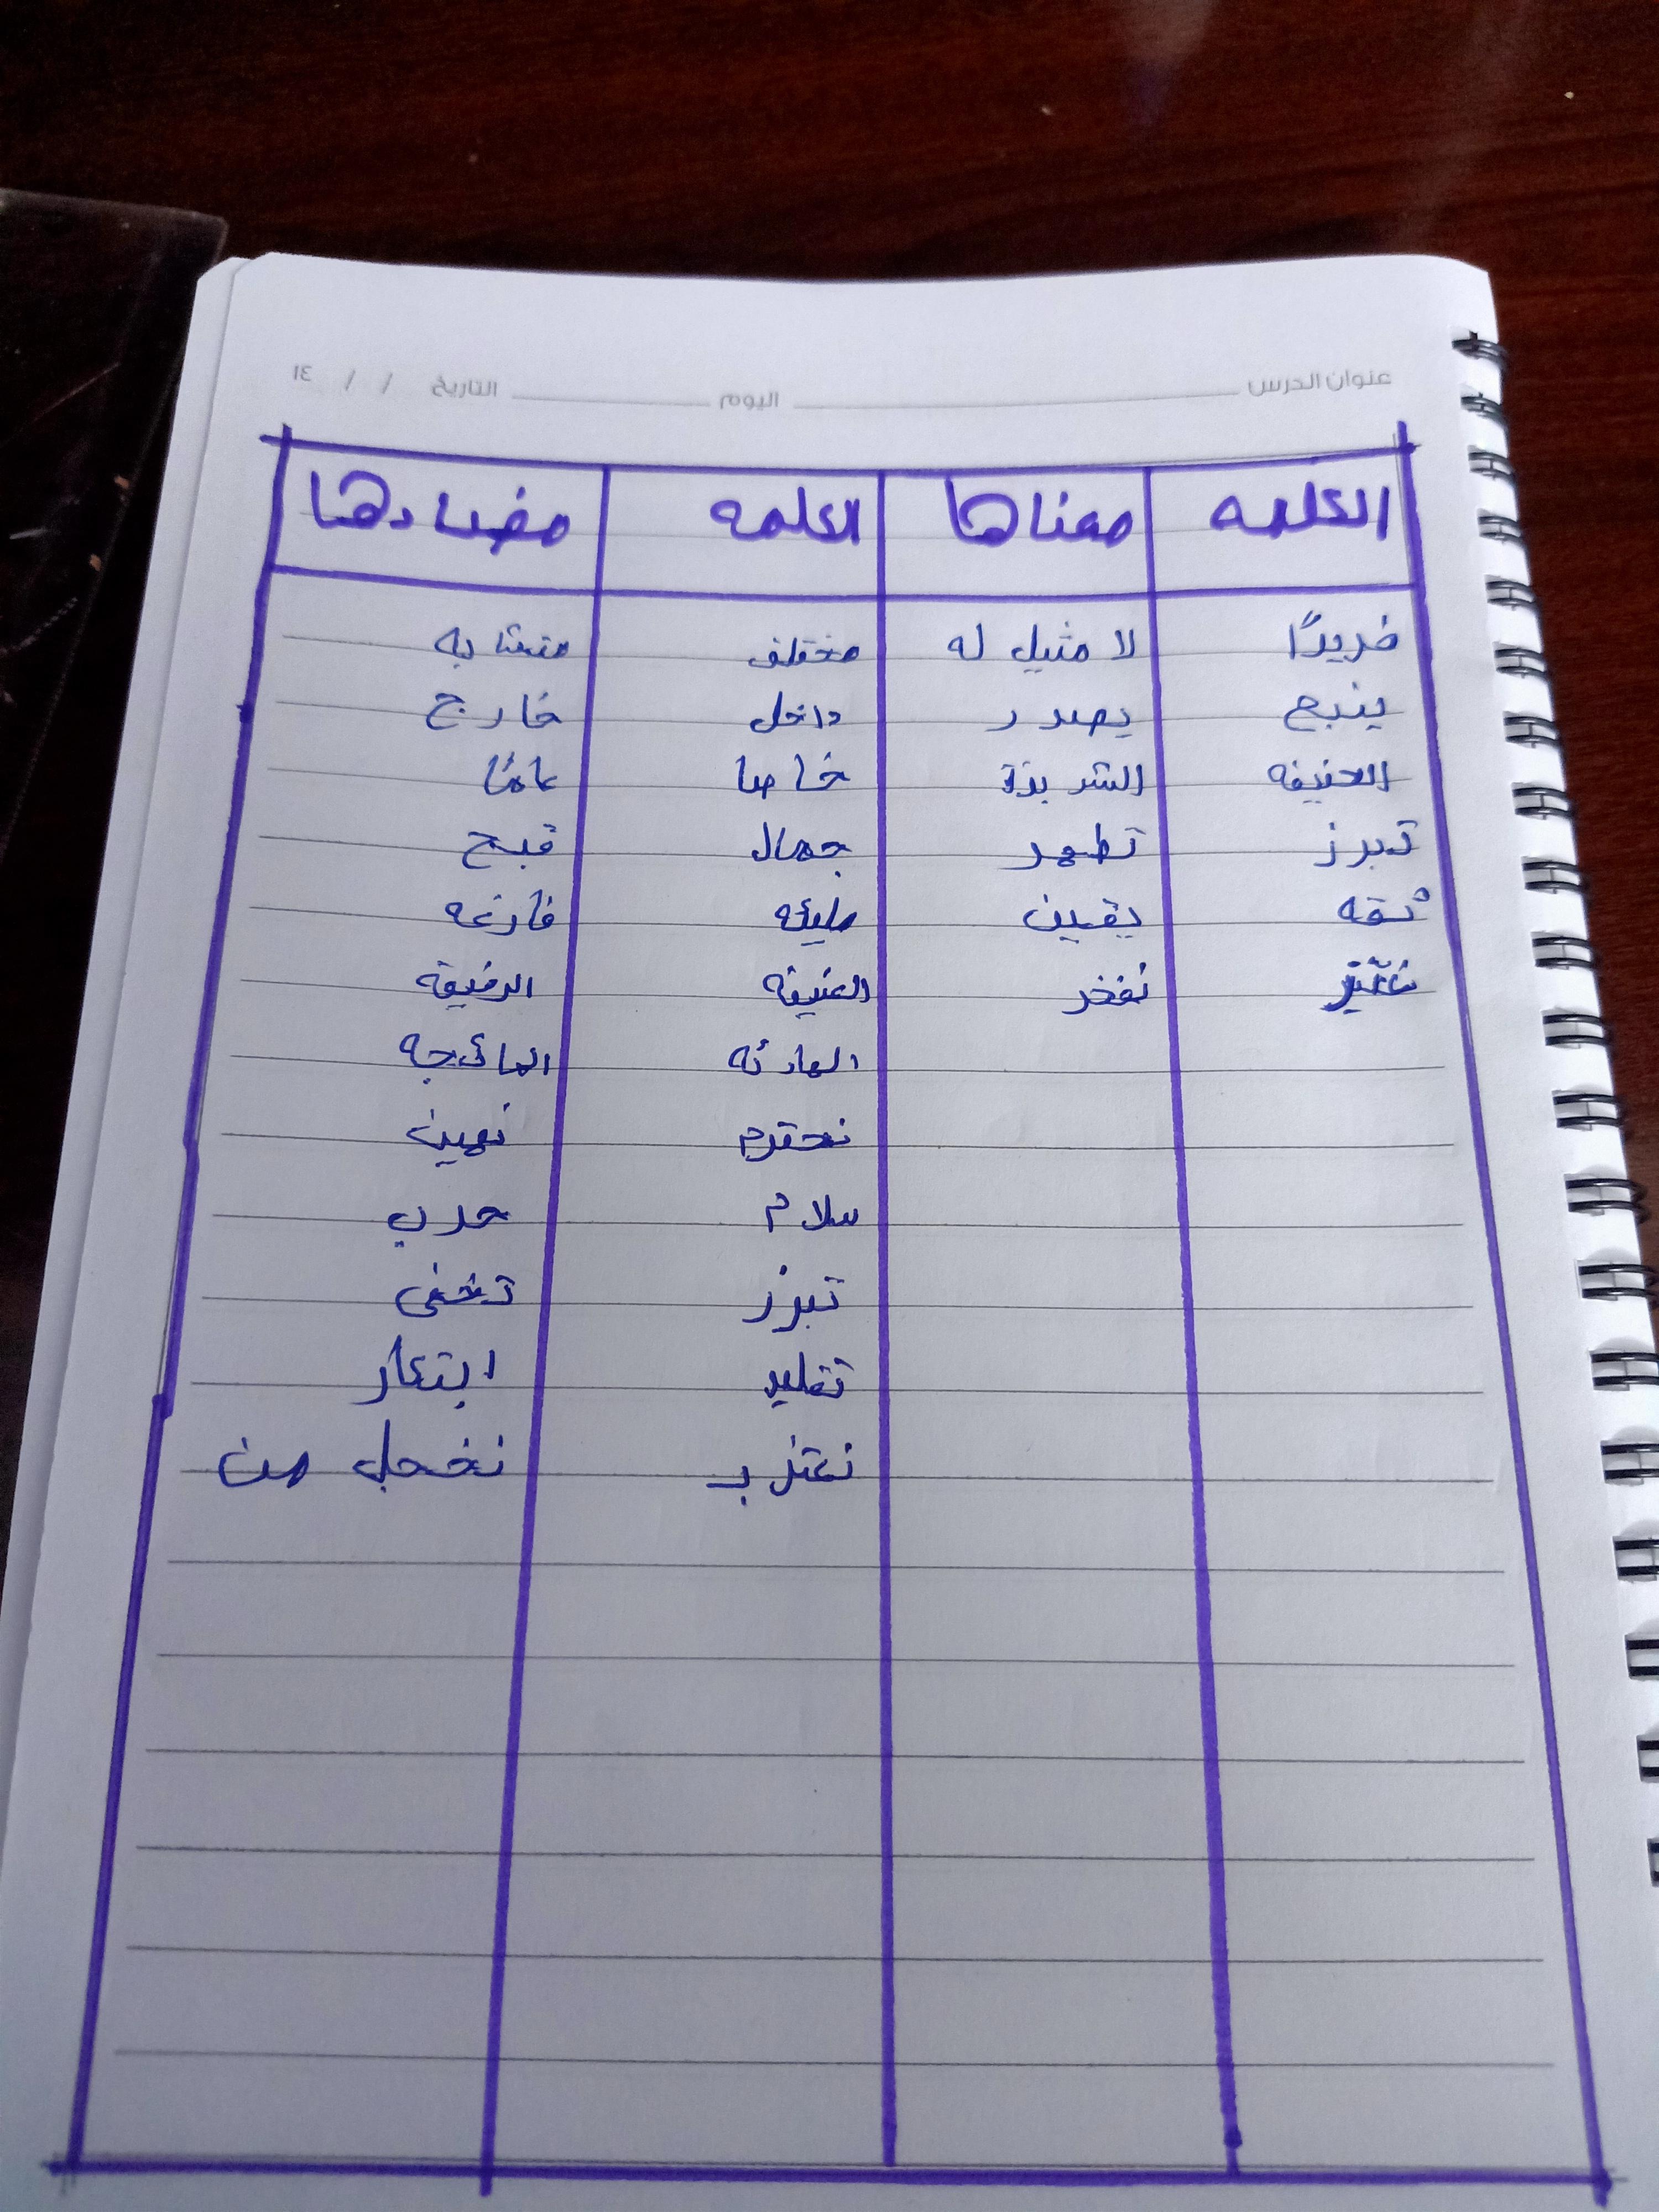 عنوان الدرس اليوم التاريخ / / ١٤
الكلمه معناها الكلمه مضادها
فريدًا لا مثيل له مختلف متشابه
ينبع يصدر داخل خارج
العنيفه الشديدة خاصا عامًا
تبرز تظهر جمال قبح
ثقه يقين مليئه فارغه
نفخر العنيفه الرقيقه
الهادئه المائجه
نحترم نهين
سلام حرب
تبرز تخفى
تقليد ابتكار
نعتز بـ نخجل من